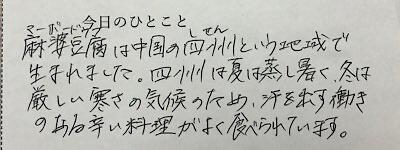 今日のひとこと
マーボードウフ
しせん
麻婆豆腐は中国の四州という地域で
生まれました。四川は夏は蒸し暑く、冬は
厳しい寒さの気候のため、汗を出す働き
のある辛い料理がよく食べられています。